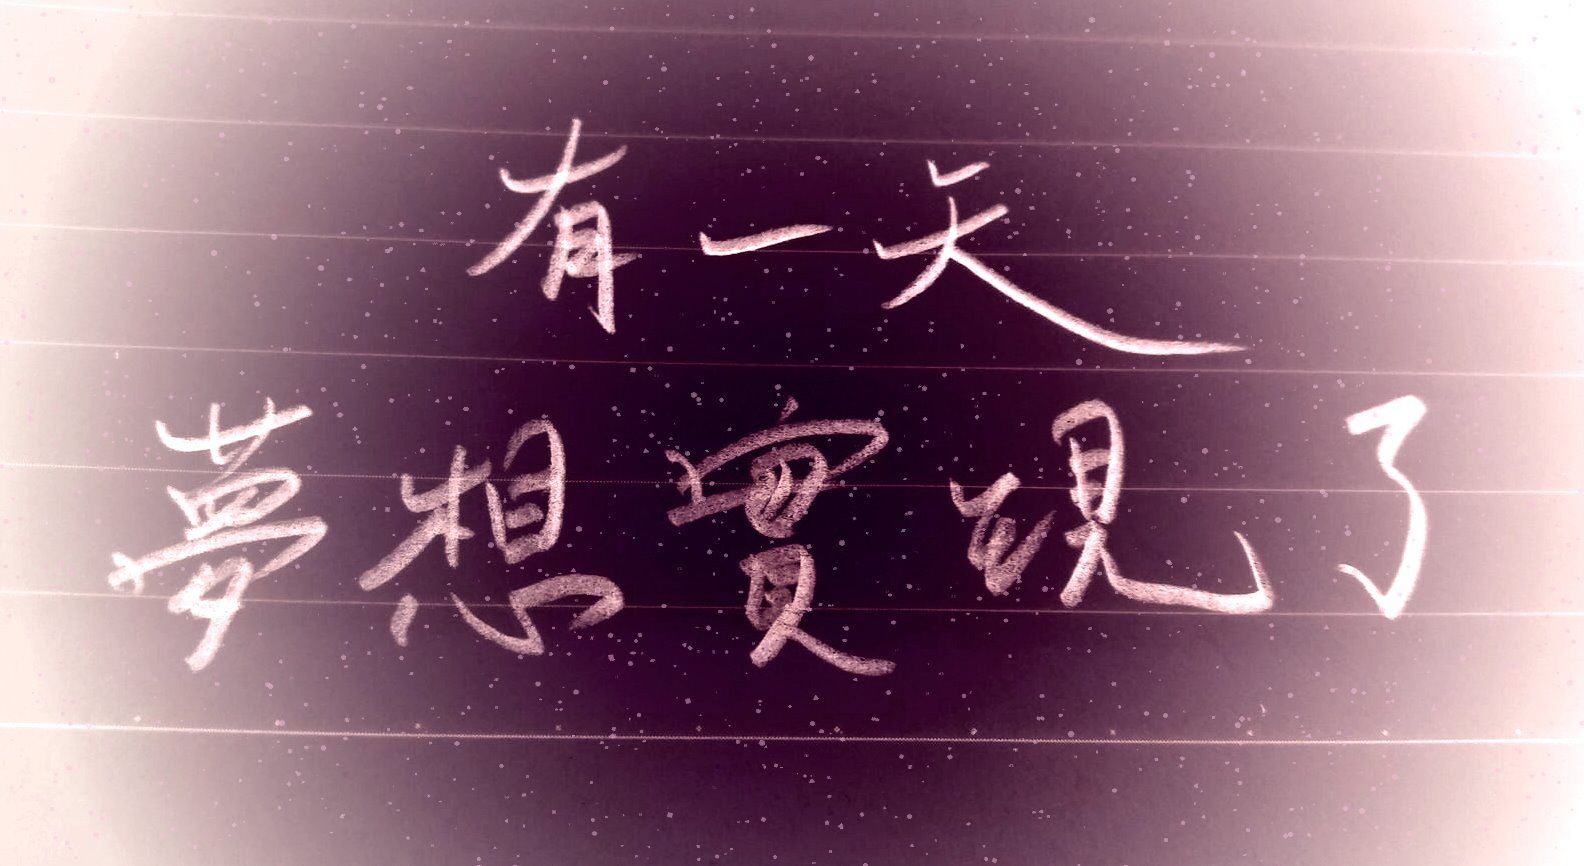 有一天
夢想實現了